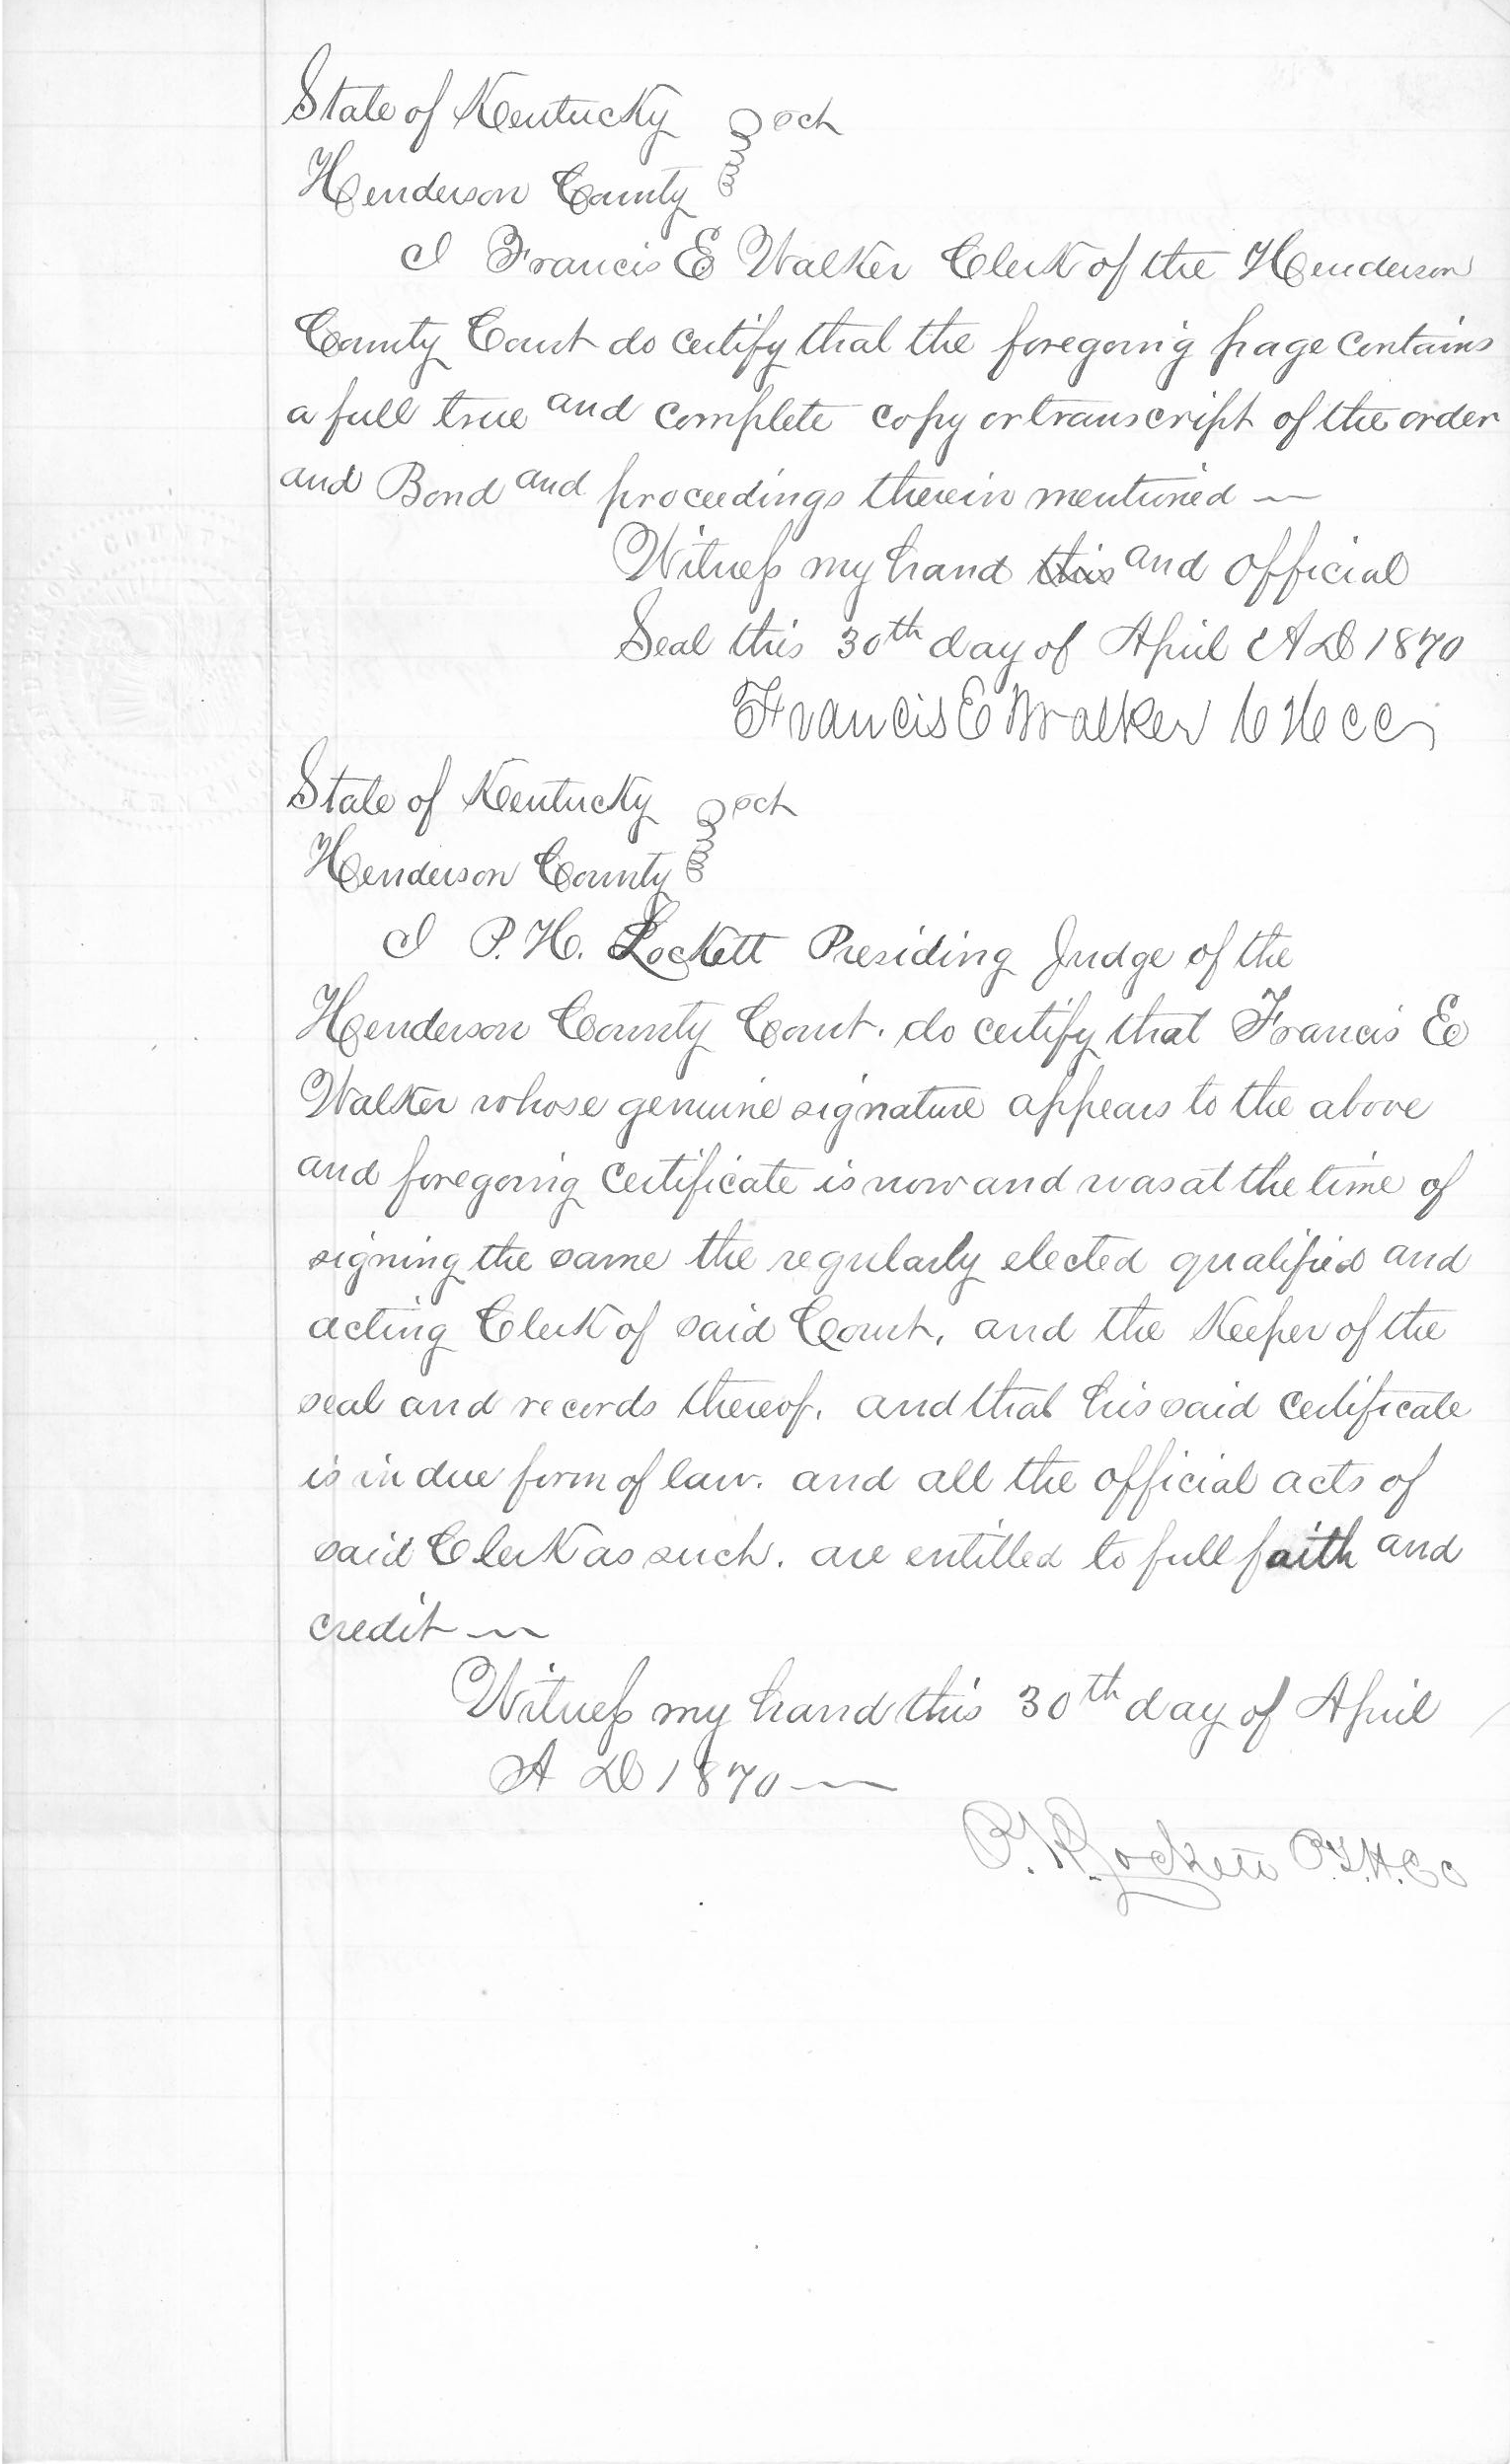 State of Kentucky } Sct
Henderson County }
I Francis E Walker Clerk of the Henderson
County Court do certify that the foregoing page contains
a full true and complete copy or transcript of the order
and Bond and proceedings therein mentioned —
Witness my hand this and official
Seal this 30th day of April A D 1870
Francis E Walker C H C C
State of Kentucky } Sct
Henderson County }
I P. H. Lockett Presiding Judge of the
Henderson County Court. do certify that Francis E
Walker whose genuine signature appears to the above
and foregoing certificate is now and was at the time of
signing the same the regularly elected qualified and
acting Clerk of said Court, and the Keeper of the
seal and records thereof, and that his said certificate
is in due form of law. and all the official acts of
said Clerk as such. are entitled to full faith and
credit —
Witness my hand this 30th day of April
A D 1870 —
P. H. Lockett P.J.H.C.C